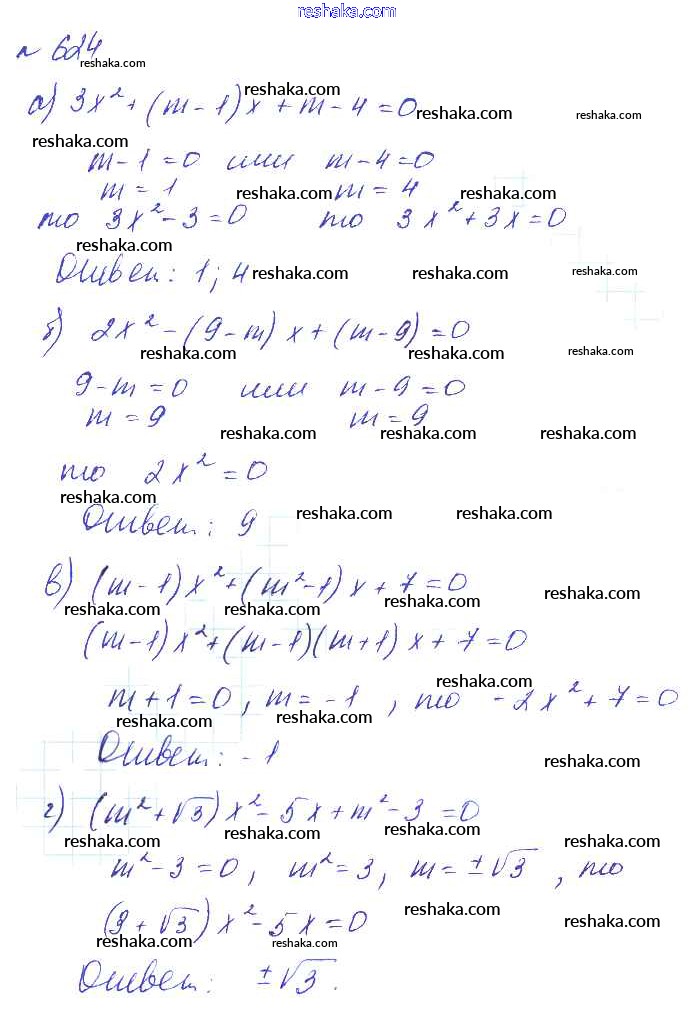 reshaka.com
№ 624
reshaka.com
а) 3x² + (m - 1)x + m - 4 = 0
reshaka.com reshaka.com reshaka.com
reshaka.com
m - 1 = 0 или m - 4 = 0
m = 1 m = 4
reshaka.com reshaka.com
то 3x² - 3 = 0 то 3x² + 3x = 0
reshaka.com
Ответ: 1; 4
reshaka.com reshaka.com reshaka.com
б) 2x² - (9 - m)x + (m - 9) = 0
reshaka.com reshaka.com reshaka.com
9 - m = 0 или m - 9 = 0
m = 9 m = 9
reshaka.com reshaka.com reshaka.com
то 2x² = 0
reshaka.com
Ответ: 9
reshaka.com reshaka.com
в) (m - 1)x² + (m² - 1)x + 7 = 0
reshaka.com reshaka.com reshaka.com reshaka.com
(m - 1)x² + (m - 1)(m + 1)x + 7 = 0
reshaka.com
m + 1 = 0, m = -1, то -2x² + 7 = 0
reshaka.com reshaka.com
Ответ: -1
reshaka.com
г) (m² + √3)x² - 5x + m² - 3 = 0
reshaka.com reshaka.com reshaka.com reshaka.com
m² - 3 = 0, m² = 3, m = ±√3, то
reshaka.com reshaka.com
(3 + √3)x² - 5x = 0
reshaka.com reshaka.com
Ответ: ±√3.